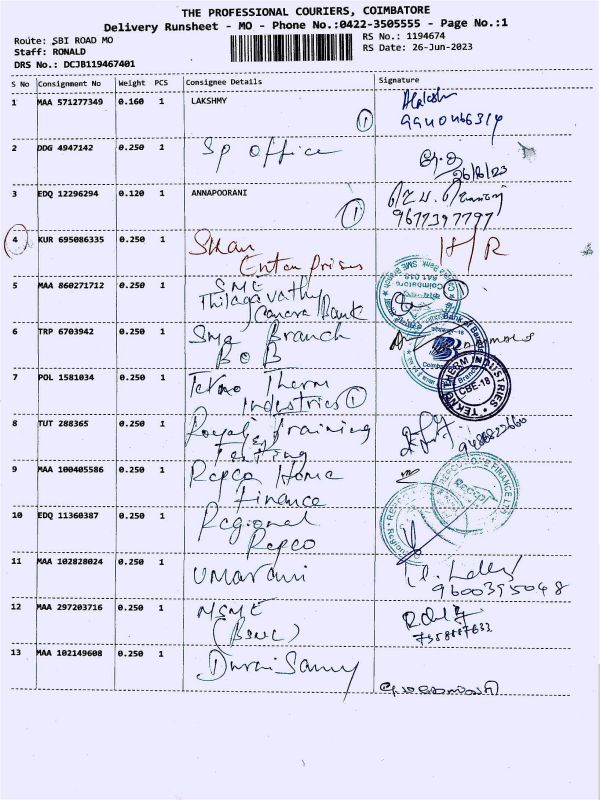 THE PROFESSIONAL COURIERS, COIMBATORE
Delivery Runsheet - MO - Phone No.:0422-3505555 - Page No.:1
Route: SBI ROAD MO
Staff: RONALD
DRS No.: DCJB119467401
RS No.: 1194674
RS Date: 26-Jun-2023
S No Consignment No Weight PCS Consignee Details Signature
1 MAA 571277349 0.160 1 LAKSHMY 1
2 DDG 4947142 0.250 1 SP office 26/6/23
3 EDQ 12296294 0.120 1 ANNAPOORANI 1
9677397797
4 KUR 695086335 0.250 1 Shan H/R
Enterprises
5 MAA 860271712 0.250 1 SME
Thilagavathy
Canara Bank
6 TRP 6703942 0.250 1 Sme Branch
BOB
7 POL 1581034 0.250 1 Tekno Therm
Industries 1
TEKNO THERM INDUSTRIES
CBE-18
8 TUT 288365 0.250 1 Training
Testing
9 MAA 100405586 0.250 1 Repco Home
Finance
10 EDQ 11360387 0.250 1 Regional
Repco
11 MAA 102828024 0.250 1 Umarani
9600395048
12 MAA 297203716 0.250 1 MSME
(BSNL)
13 MAA 102149608 0.250 1 Durai Samy